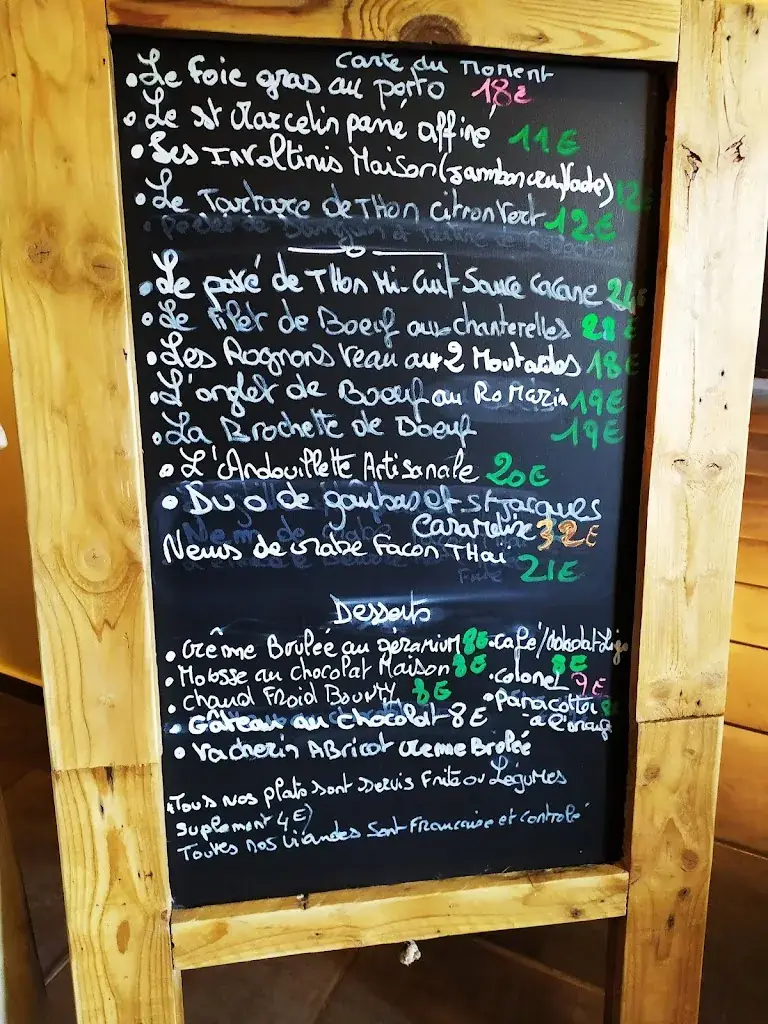 Carte du Moment
• Le Foie gras au porto 18€
• Le St Marcelin pané affiné 11€
• Les Involtinis Maison (Jambon cru,
• Le Tartare de Thon Citron Vert 12€
• Le pavé de Thon Mi-Cuit Sauce
• Le Filet de Boeuf aux chanterelles 28€
• Les Rognons Veau aux 2 Moutardes 18€
• L'onglet de Boeuf au RoMarin 19€
• La Brochette de Boeuf 19€
• L'Andouillette Artisanale 20€
• Duo de gambas et St Jacques
Caramelise 32€
Nems de crabe Facon Thaï
21€
Desserts
• Crème Brulée au géranium 8€
• Mousse au chocolat Maison 8€
• Chaud Froid Bounty 8€
• Gâteau au chocolat 8€
• Vacherin Abricot creme Brulée
• café/
8€
• colonel 9€
• Panacotta
à l'orange
• Tous nos plats sont servis Frite ou Légumes
suplement 4€)
Toutes nos viandes sont Francaise et controlé